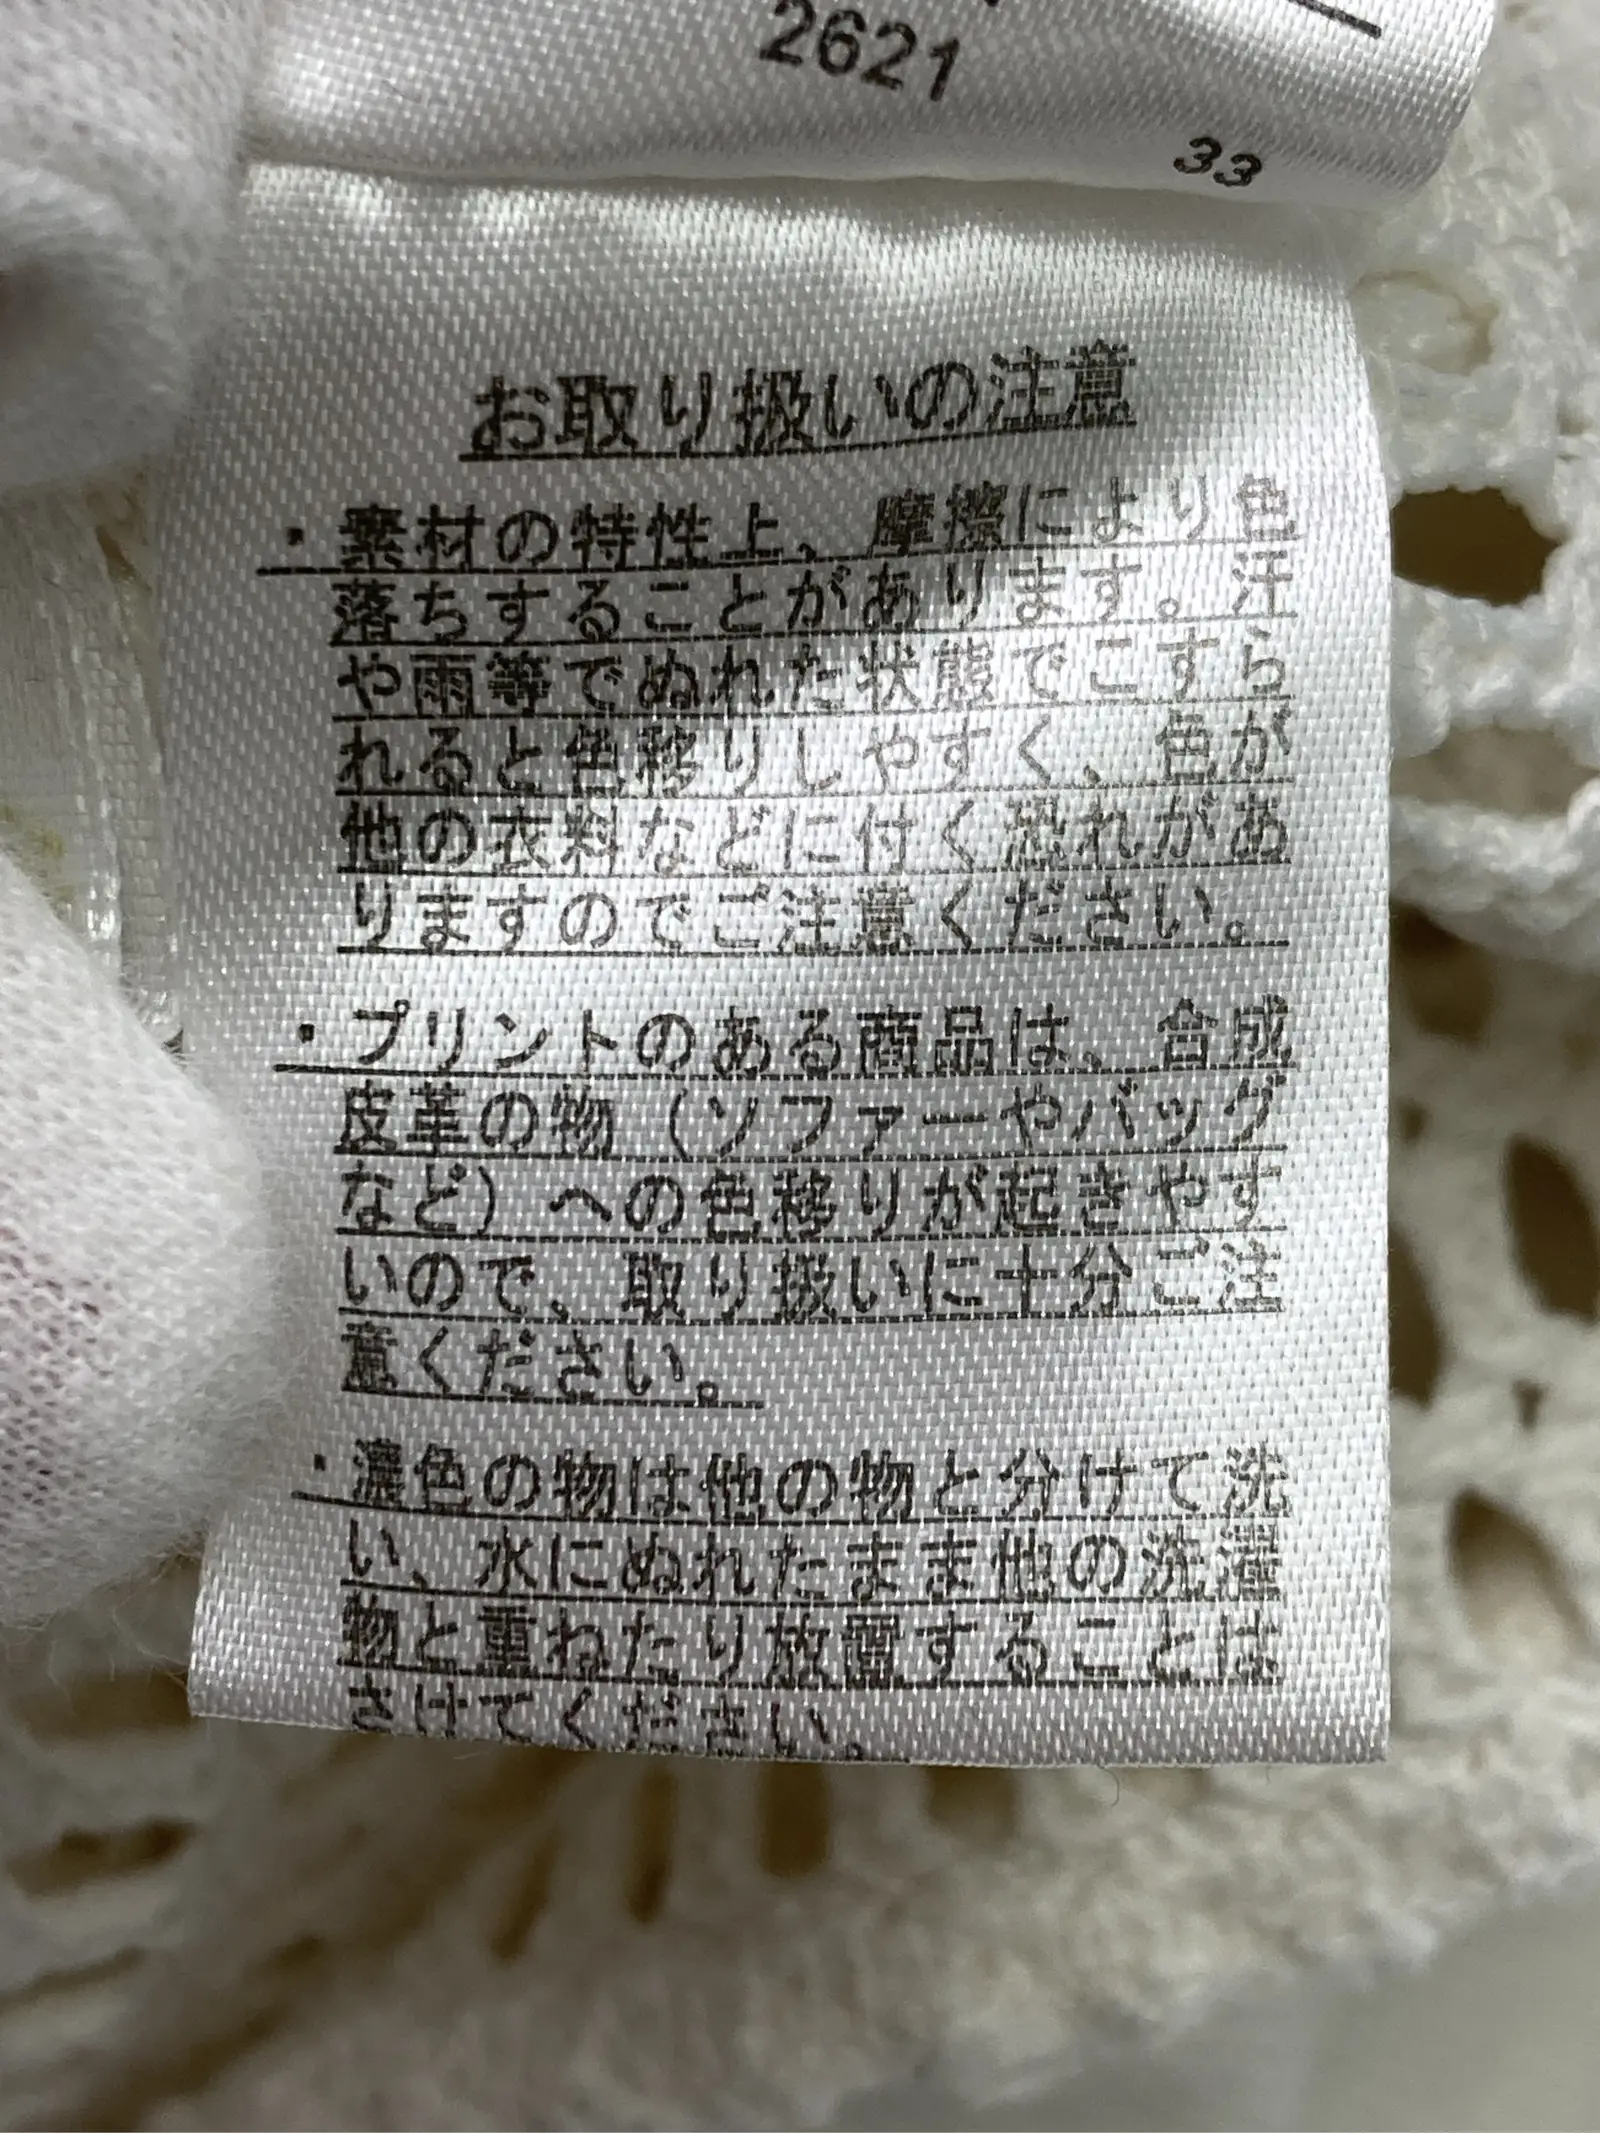 2621
33
お取り扱いの注意
・素材の特性上、摩擦により色
落ちすることがあります。汗
や雨等でぬれた状態でこすら
れると色移りしやすく、色が
他の衣料などに付く恐れがあ
りますのでご注意ください。
・プリントのある商品は、合成
皮革の物（ソファーやバッグ
など）への色移りが起きやす
いので、取り扱いに十分ご注
意ください。
・濃色の物は他の物と分けて洗
い、水にぬれたまま他の洗濯
物と重ねたり放置することは
さけてください。